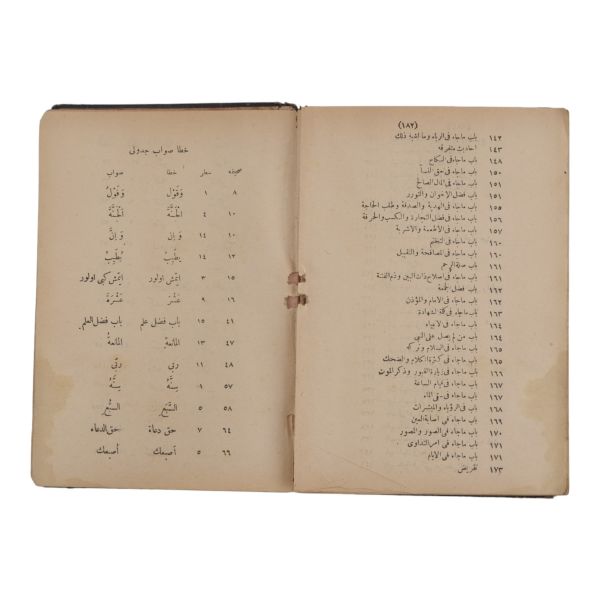 (١٨٢)
١٤٢ باب ماجاء فى الرياء وما اشبه ذلك
١٤٣ احاديث متفرقه
١٤٨ باب ماجاء فى النكاح
١٥٠ باب ماجاء فى حق النسأ
١٥١ باب ماجاء فى المال الصالح
١٥١ باب فضل الاخوان والتورر
١٥٥ باب ماجاء فى الهدية والصدقة وطلب الحاجة
١٥٦ باب ماجاء فى فضل التجارة والكسب والحرفة
١٥٧ باب ماجاء فى الأطعمة والاشربة
باب ماجاء فى التختم
١٦٠ باب ماجاء فى المصافحة والتقبيل
١٦١ باب صلة الرحم
١٦١ باب ماجاء فى اصلاح ذات البين وذم الفتنة
١٦٢ باب فضل الجمعة
١٦٢ باب ماجاء فى الامام والمؤذن
باب ماجاء فى كلمة الشهادة
١٦٤ باب ماجاء فى الانبياء
باب من لم يصل على النبى
١٦٥ باب ماجاء فى السلام وتركه
١٦٥ باب ماجاء فى كثرة الكلام والضحك
١٦٦ باب ماجاء فى زيارة القبور وذكر الموت
١٦٧ باب ماجاء فى قيام الساعة
١٦٧ باب ماجاء فى سقى الماء
١٦٨ باب ماجاء فى الرؤياء والمبشرات
باب ماجاء فى اصابة العين
باب ماجاء فى الصور والمصور
١٧١ باب ماجاء فى امر التداوى
١٧١ باب ماجاء فى الايام
١٧٣ تقريض
خطا صواب جدولى
صحيفه سطر خطا صواب
٨ ١ وَقَوْلُ وَقَوْلُ
١٠ ٤ الْجَنَّة اَلْجَنَّةُ
١٠ ١٤ وَاِنْ وَاِنَّ
١٢ ١٤ يطَيِّبُ يُطَيِّبُ
١٥ ٣ ايتمش اولور ايتمش كبى اولور
١٦ ٩ عَشْرَ عَشْرَةَ
٤١ ١٥ باب فضل علم باب فضل العلم
٤٧ ١٣ المائمة
٤٨ ١١ ربى رَبّى
٥٧ ١ سِتَّه سِتَّةُ
٥٨ ٥ السَّبْعِ السَّبُعِ
٦٤ ٧ حق دعاء حق الدعاء
٦٦ ٥ أصبعك اُصبعك